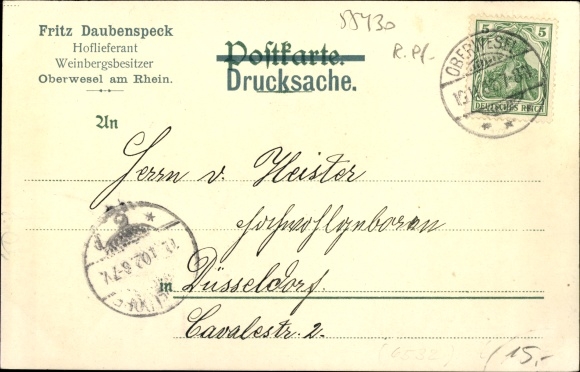 Fritz Daubenspeck
Hoflieferant
Weinbergsbesitzer
Oberwesel am Rhein.
55430
R. Pf.
Postkarte.
Drucksache.
5 5
DEUTSCHES REICH
OBERWESEL
An
Herrn v. Heister
Hochwohlgeboren
in Düsseldorf.
Cavalestr. 2.
15,-